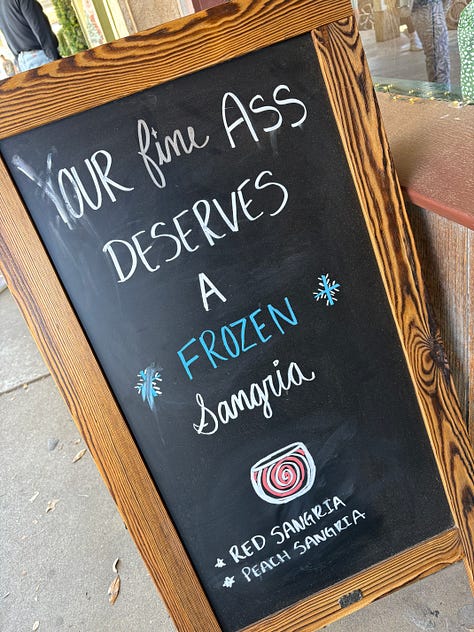 YOUR fine ASS
DESERVES
A
FROZEN
Sangria
* RED SANGRIA
* PEACH SANGRIA